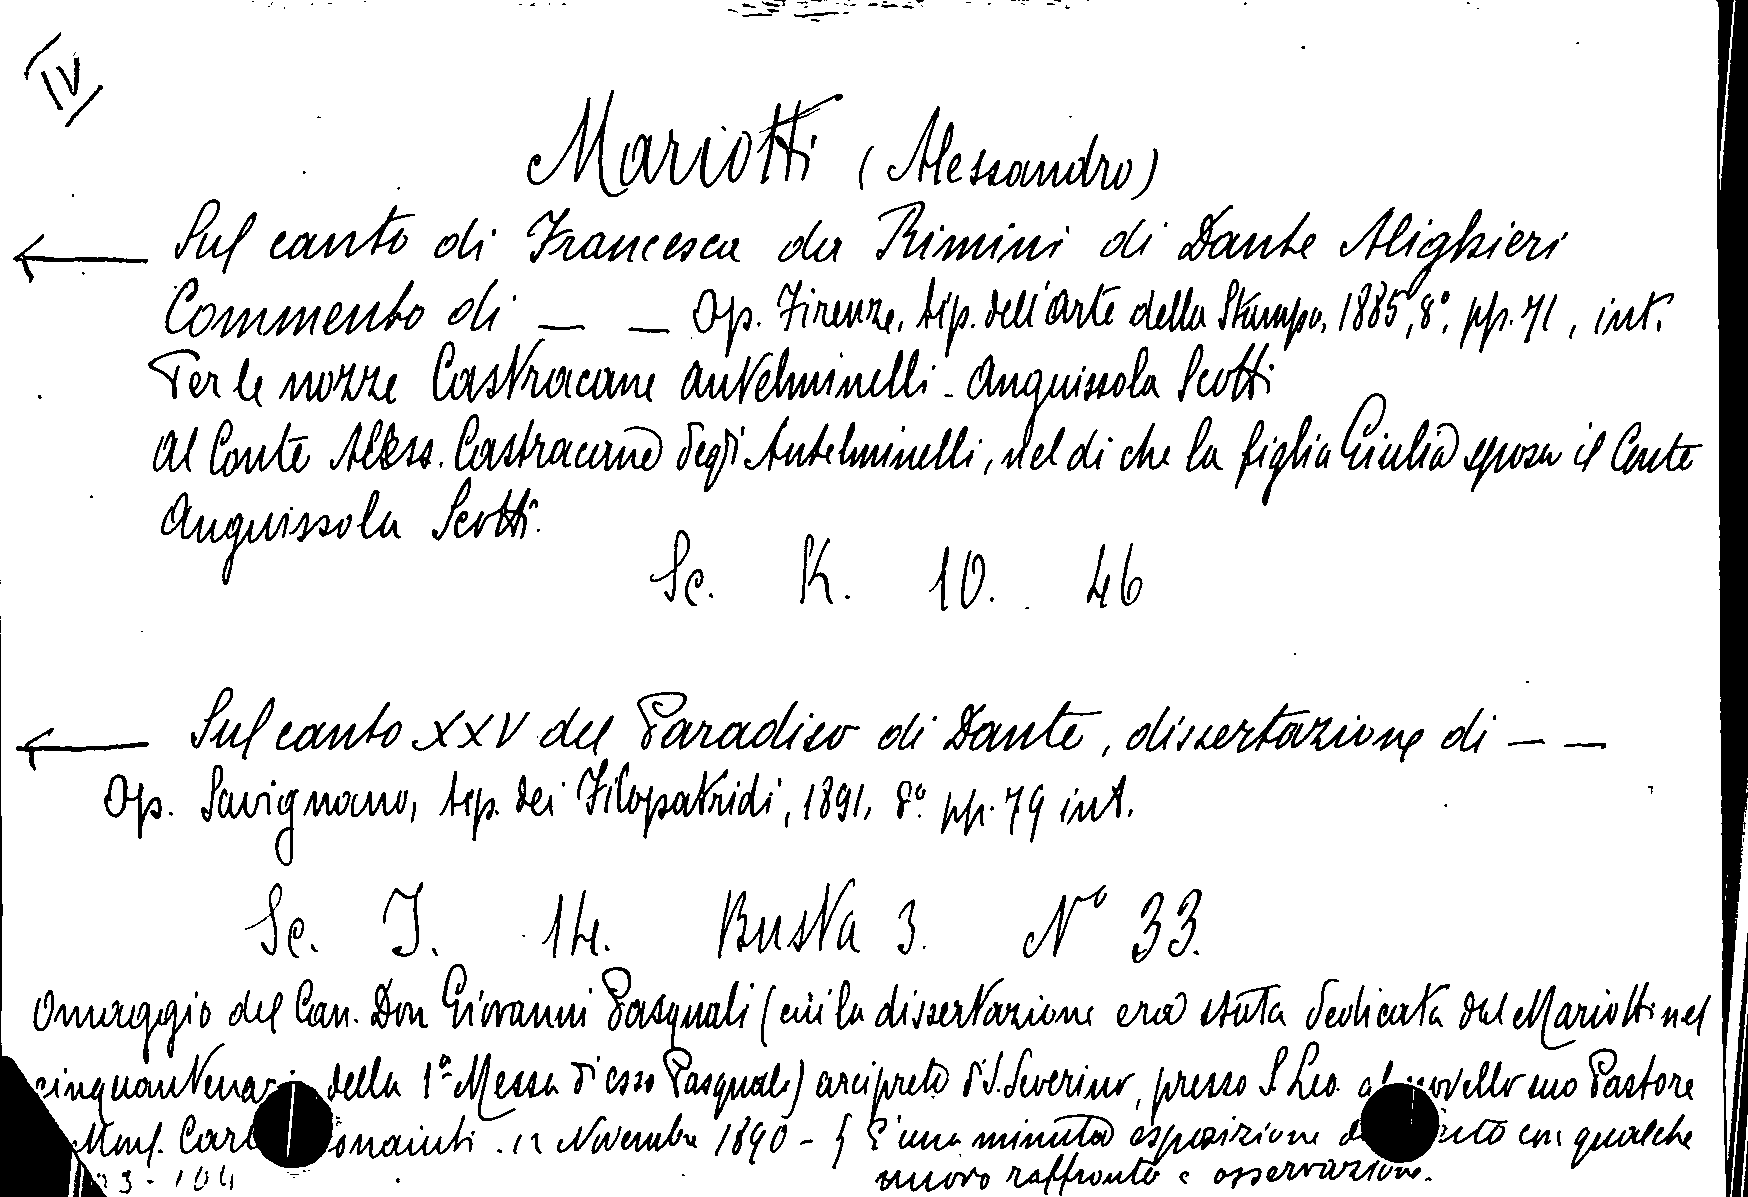 IV
Mariotti (Alessandro)
Sul canto di Francesca da Rimini di Dante Alighieri
Commento di — — Op. Firenze, tip. dell'arte della Stampa, 1885, 8°, pp. 71, int.
Per le nozze Castracane Antelminelli - Anguissola Scotti
Al Conte Aless. Castracane degli Antelminelli, nel di che la figlia Giulia sposa il Conte
Anguissola Scotti.
Sc. K. 10. 46
Sul canto XXV del Paradiso di Dante, dissertazione di — —
Op. Savignano, tip. dei Filopatridi, 1891, 8° pp. 79 int.
Sc. J. 14. Busta 3. N° 33.
Omaggio del Can. Don Giovanni Pasquali (cui la dissertazione era stata dedicata dal Mariotti nel
della 1ª Messa d'esso Pasquali) arciprete di S. Severino, presso S. Leo. al novello suo Pastore
Mons. 12 Novembre 1890 - È una minuta esposizione con qualche
nuovo raffronto e osservazione.